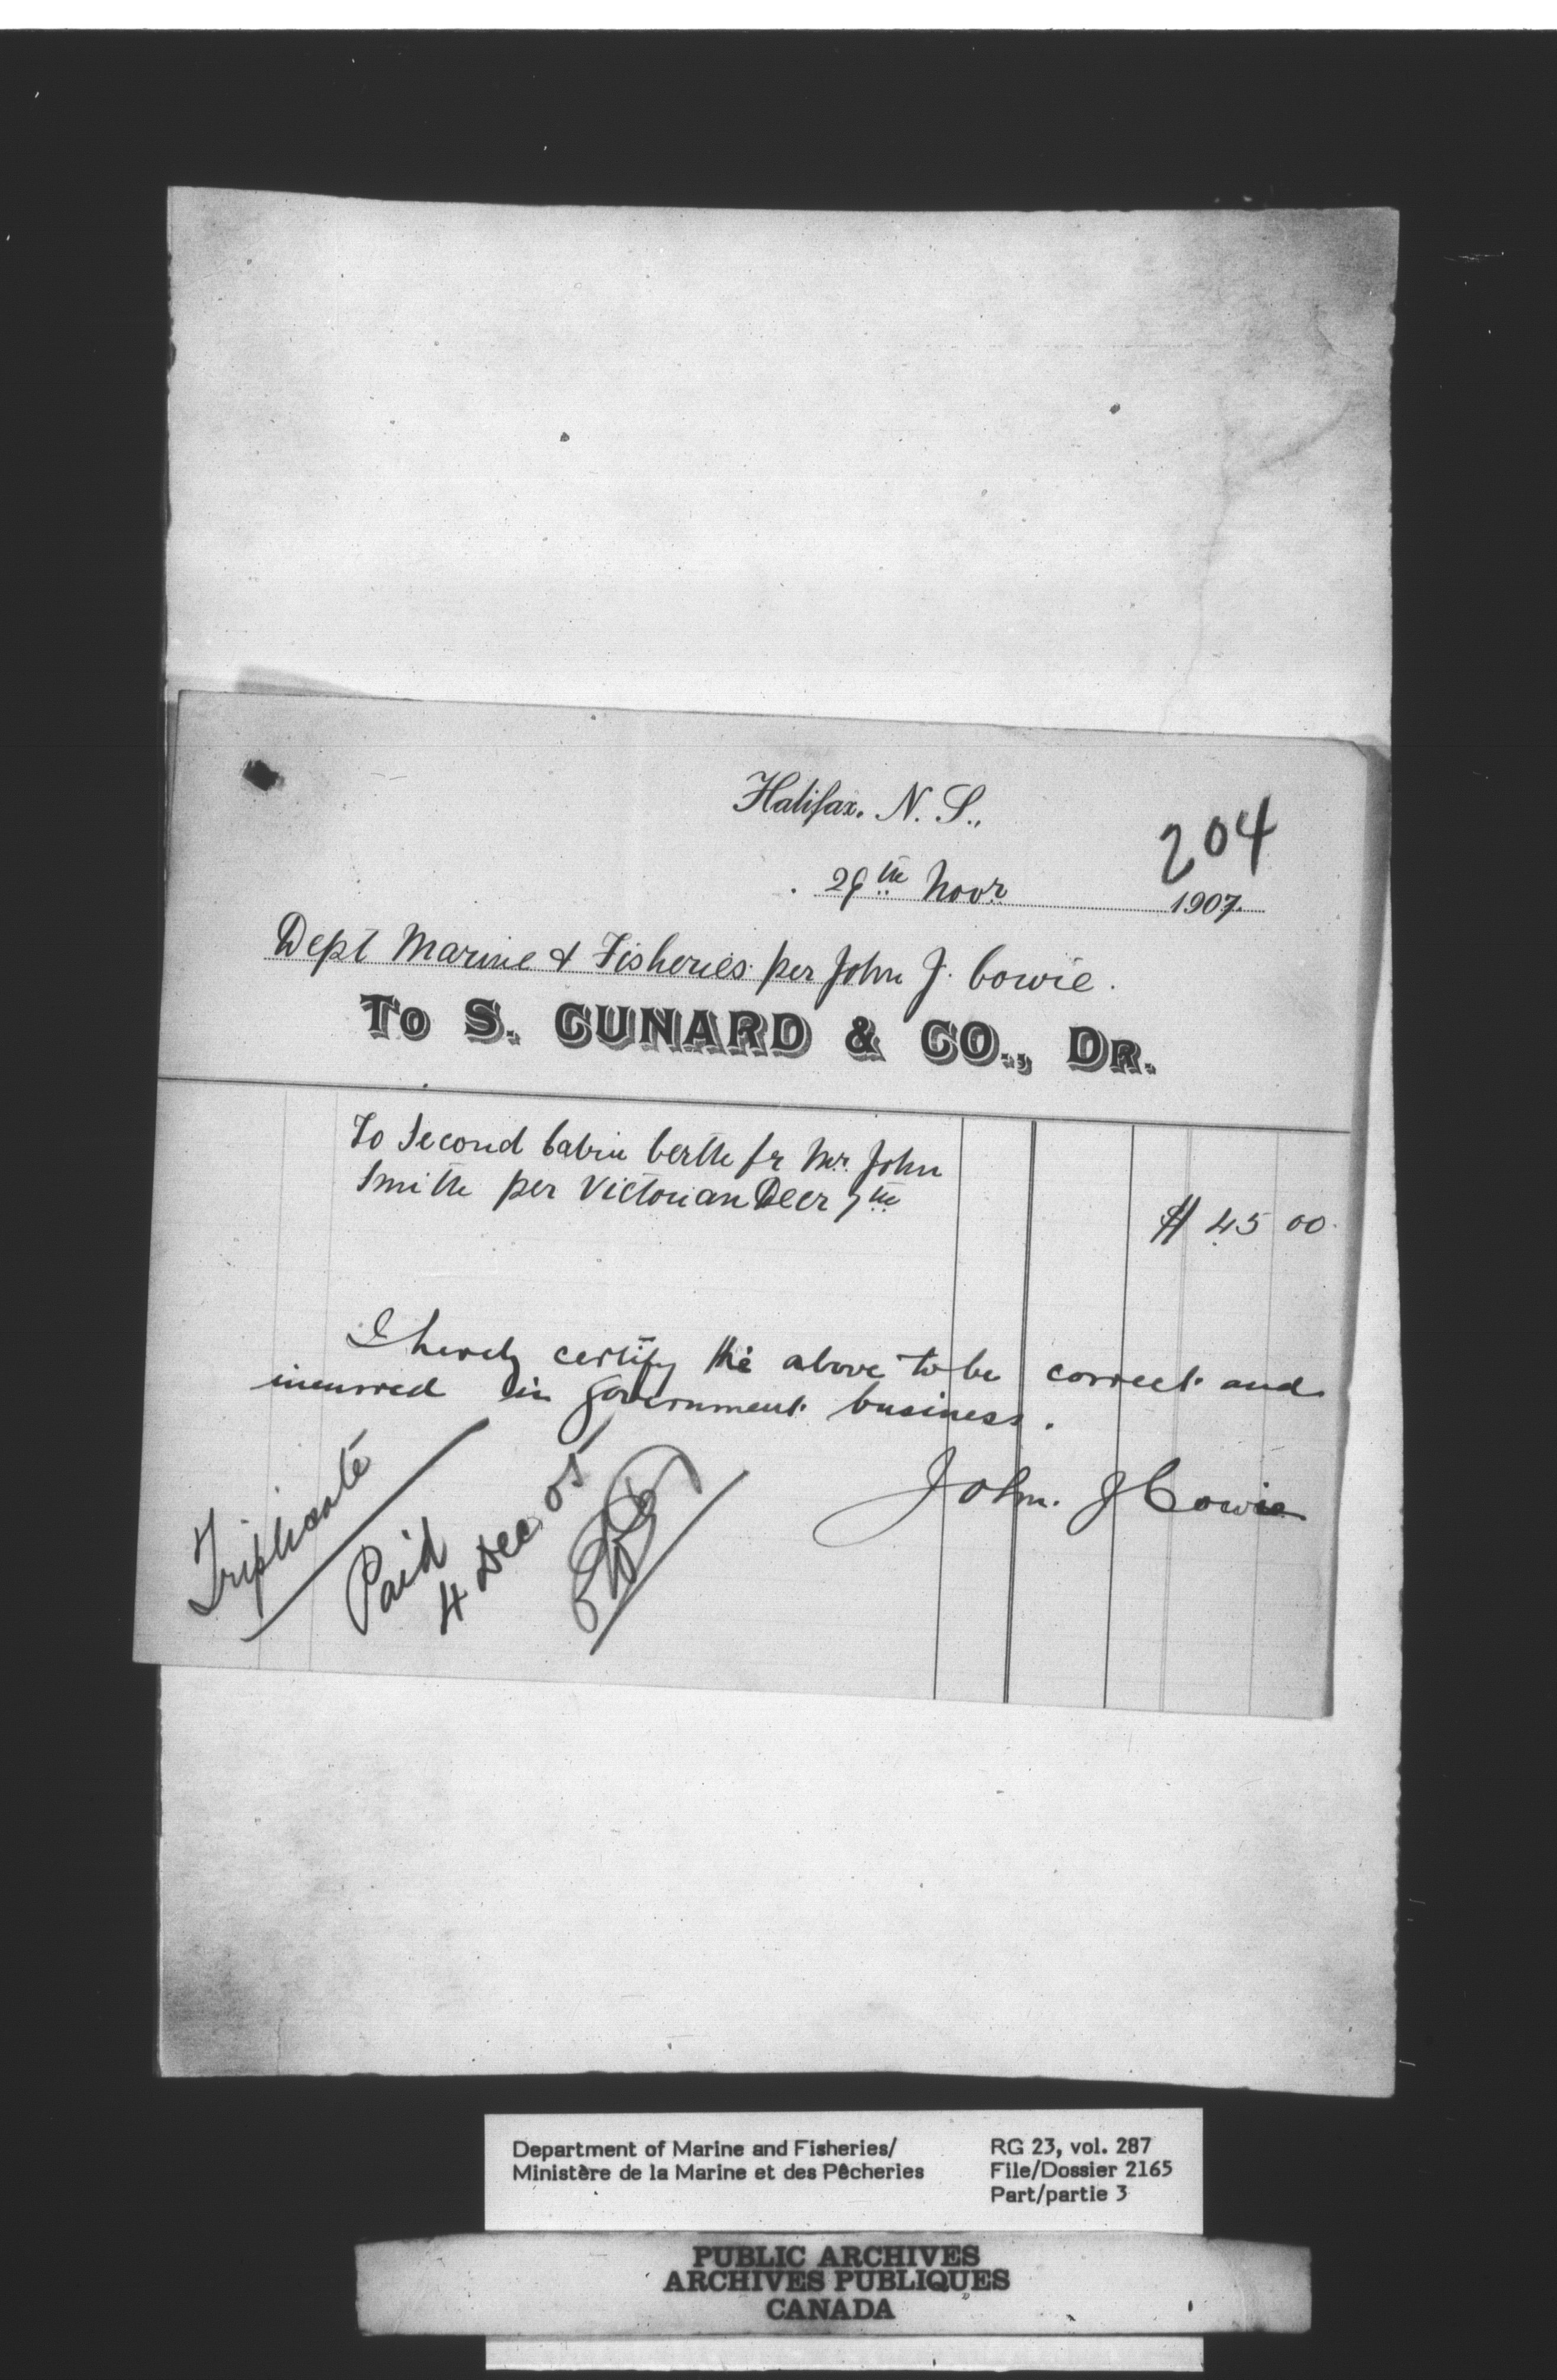 Halifax, N. S.,
204
29th Novr 1907.
Dept Marine & Fisheries per John J. Cowie.
TO S. CUNARD & CO., DR.
To Second Cabin berth fr Mr. John
Smith per Victorian Decr 7th
$ 45 00
I hereby certify the above to be correct and
incurred in government business.
John. J Cowie
Triplicate
Paid
4 Dec 05
Department of Marine and Fisheries/
Ministère de la Marine et des Pêcheries
RG 23, vol. 287
File/Dossier 2165
Part/partie 3
PUBLIC ARCHIVES
ARCHIVES PUBLIQUES
CANADA